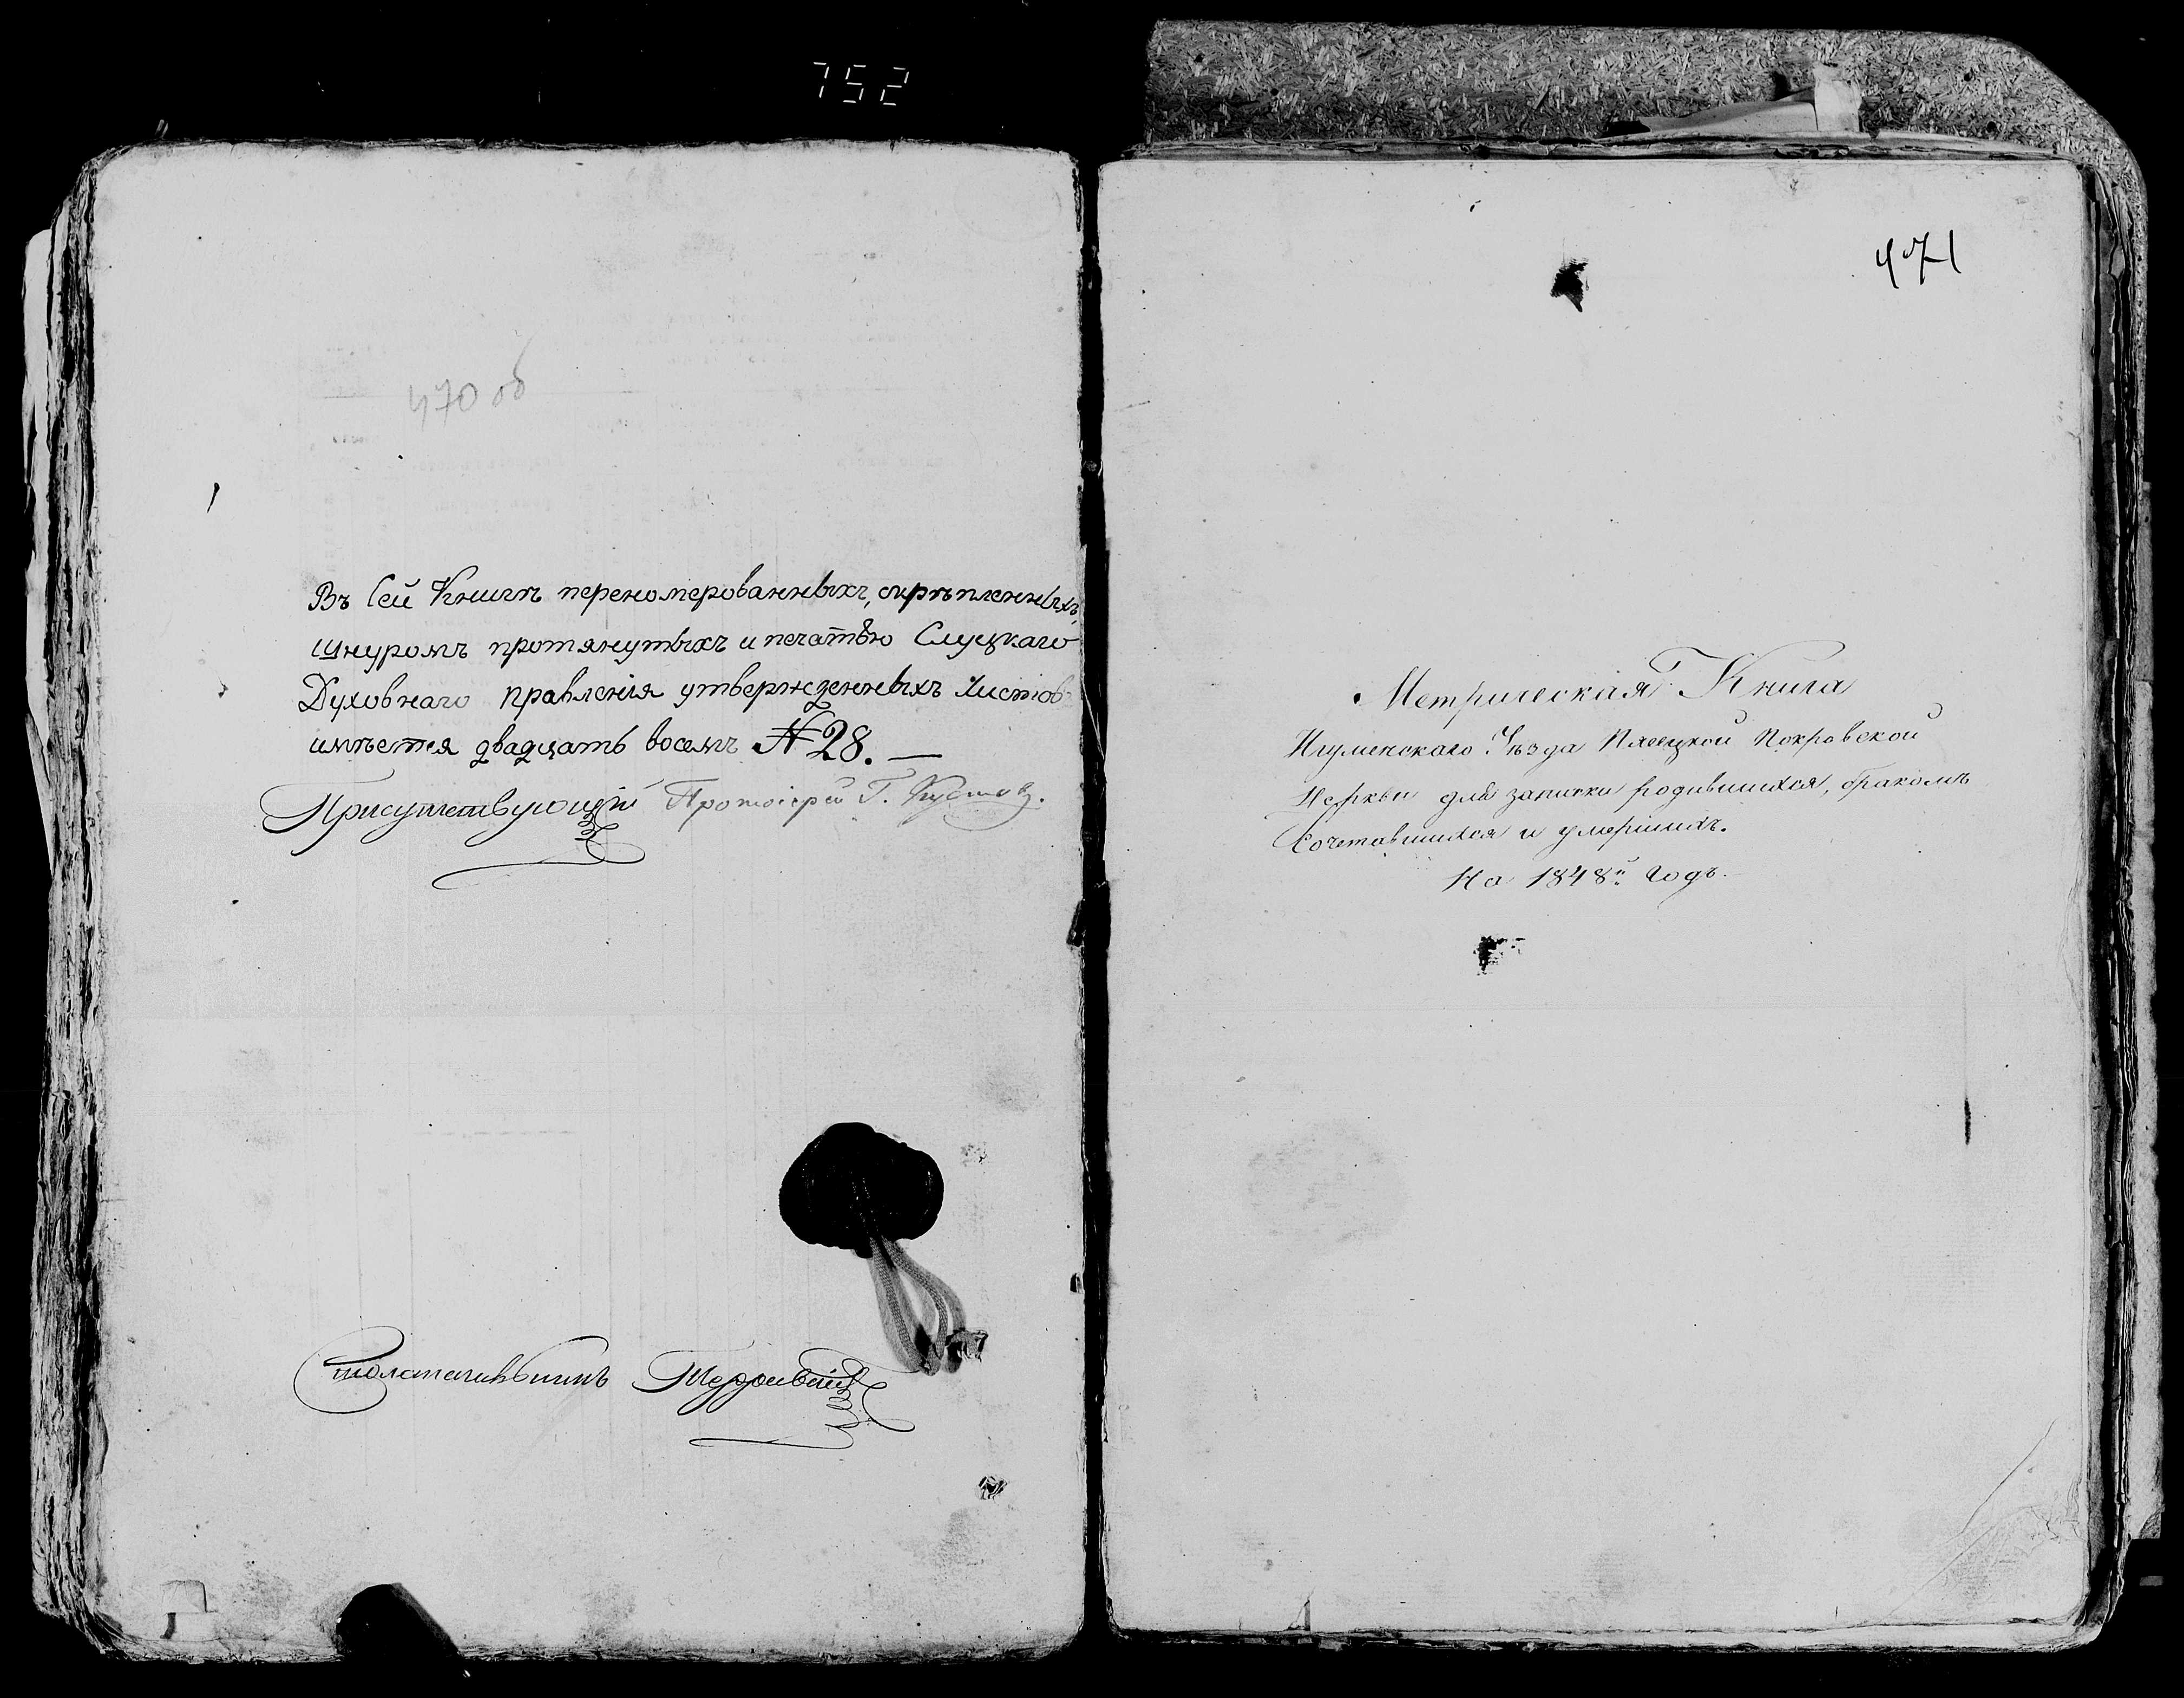 752
470 об
Въ Сей Книгѣ переномерованныхъ, скрѣпленныхъ,
шнуромъ протянутыхъ и печатью Слуцкаго
Духовнаго Правленія утвержденныхъ листов
имѣется двадцать восемъ № 28. —
Присутствующій Протоіерей Г.
Столоначальникъ
471
Метрическая Книга
Игуменскаго Уѣзда Пясецкой Покровской
Церкви для записки родившихся, бракомъ
Сочетавшихся и умершихъ.
На 1848й Годъ.